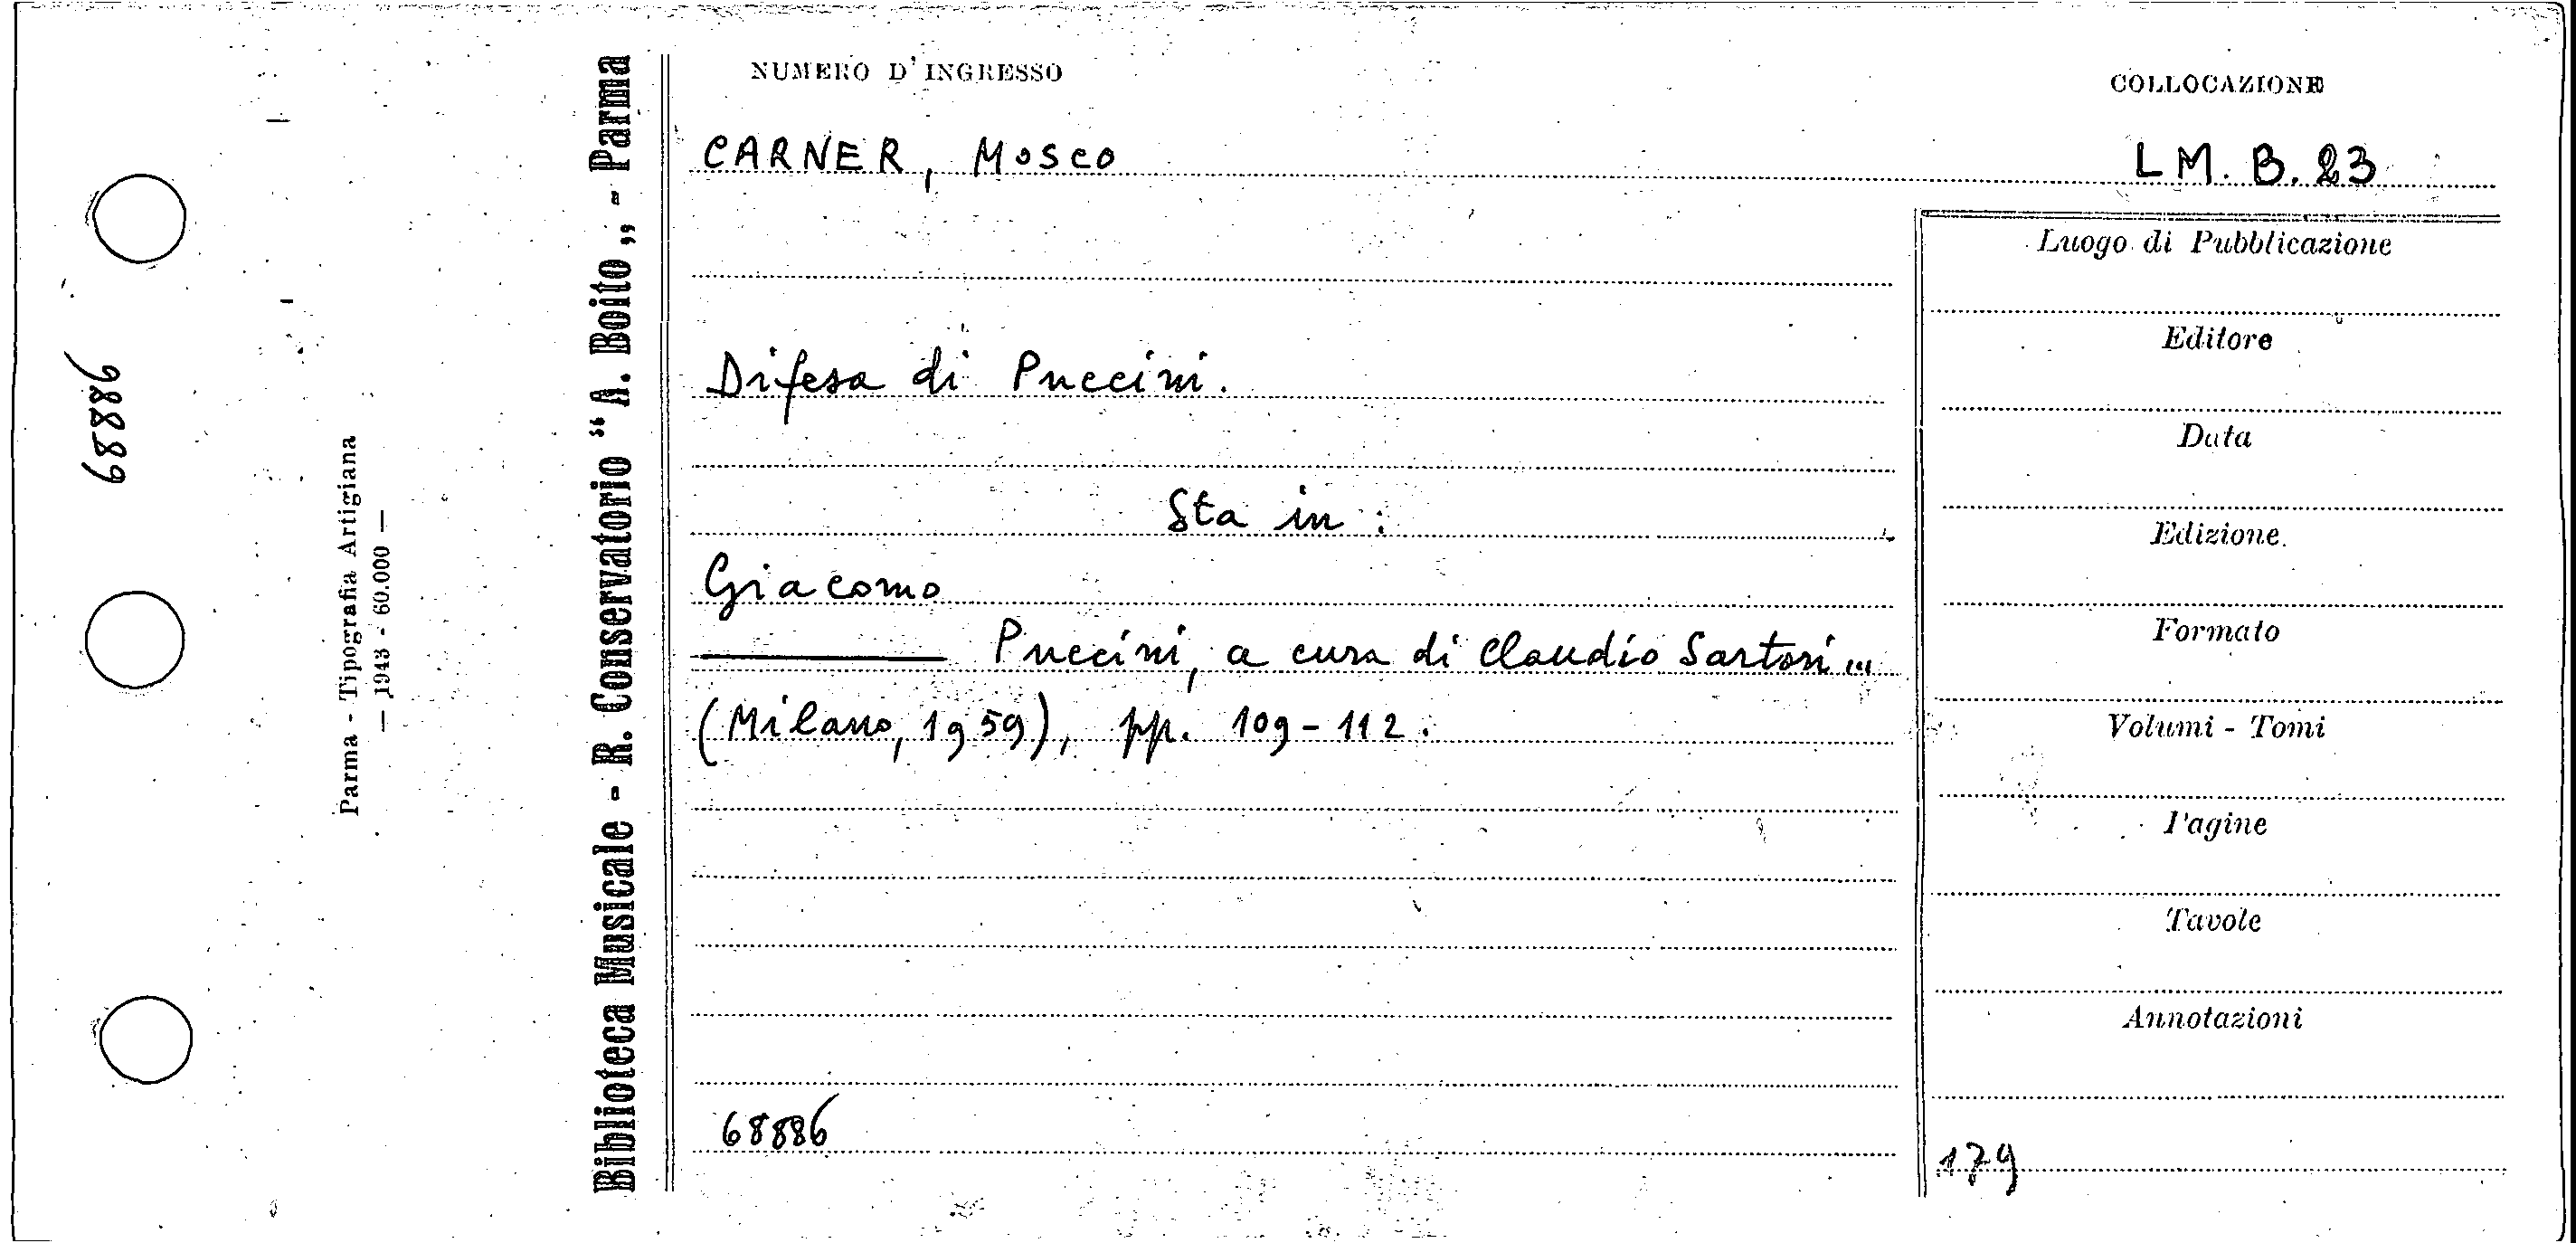 68886
Parma - Tipografia Artigiana
— 1943 - 60.000 —
Biblioteca Musicale - R. Conservatorio “A. Boito„ - Parma
NUMERO D'INGRESSO
COLLOCAZIONE
CARNER, Mosco
LM. B. 23
Difesa di Puccini.
Sta in:
Giacomo
——— Puccini, a cura di Claudio Sartori...
(Milano, 1959), pp. 109-112.
68886
Luogo di Pubblicazione
Editore
Data
Edizione
Formato
Volumi - Tomi
Pagine
Tavole
Annotazioni
179